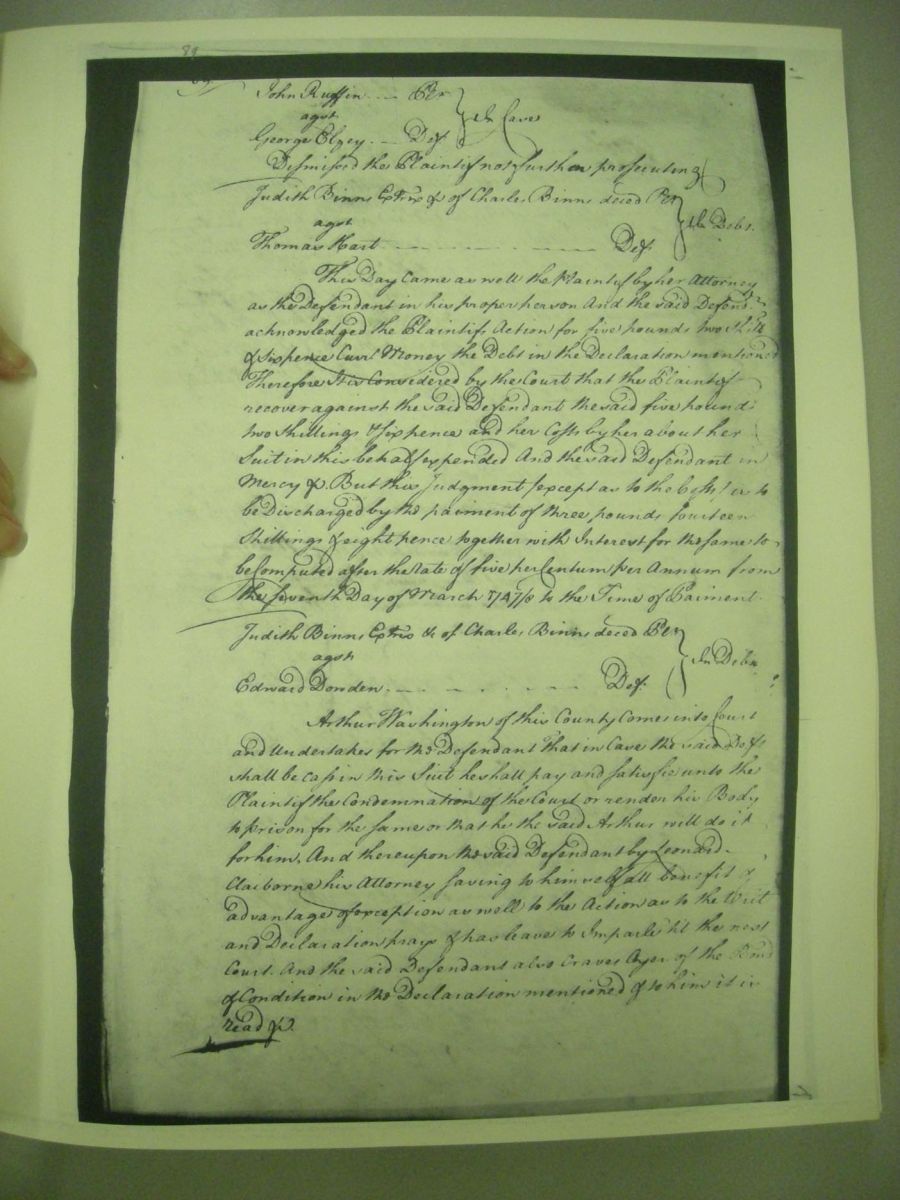 89
John Ruffin .... Plr
agst
In Case
George Elzey. — Def.
Dismissed the Plaintif not further prosecuting
Judith Binns Extrix &c of Charles Binns deced Plr
agst
In Debt.
Thomas Hart — Def.
This Day Came as well the Plaintif by her Attorney
as the Defendant in his proper person And the said Defend.t
acknowledged the Plaintifs Action for five pounds two Shills
& Sixpence Curr.t Money the Debt in the Declaration mentioned
Therefore It is Considered by the Court that the Plaintif
recover against the said Defendant the said five pounds
two Shillings & Sixpence and her Costs by her about her
Suit in this behalf expended And the said Defendant in
Mercy &c. But this Judgment (except as to the Costs) is to
be Discharged by the paiment of three pounds fourteen
Shillings & eight pence together with Interest for the same to
be Computed after the rate of five per Centum per Annum from
the seventh Day of March 1747/8 to the Time of Paiment.
Judith Binns Extrix &c of Charles Binns deced Plr
agst
In Debt
Edward Dowden. — Def.
Arthur Washington of this County comes into Court
and Undertakes for the Defendant That in Case the said Deft
shall be cast in this Suit he shall pay and satisfie unto the
Plaintif the Condemnation of the Court or render his Body
to prison for the same or that he the said Arthur will do it
for him. And thereupon the said Defendant by Leonard
Claiborne his Attorney saving to himself all benefit &
advantage of exception as well to the Action as to the Writ
and Declaration prays & has leave to Imparle 'til the next
Court. And the said Defendant also Craves Oyer of the Bond
& Condition in the Declaration mentioned & to him it is
read &c.